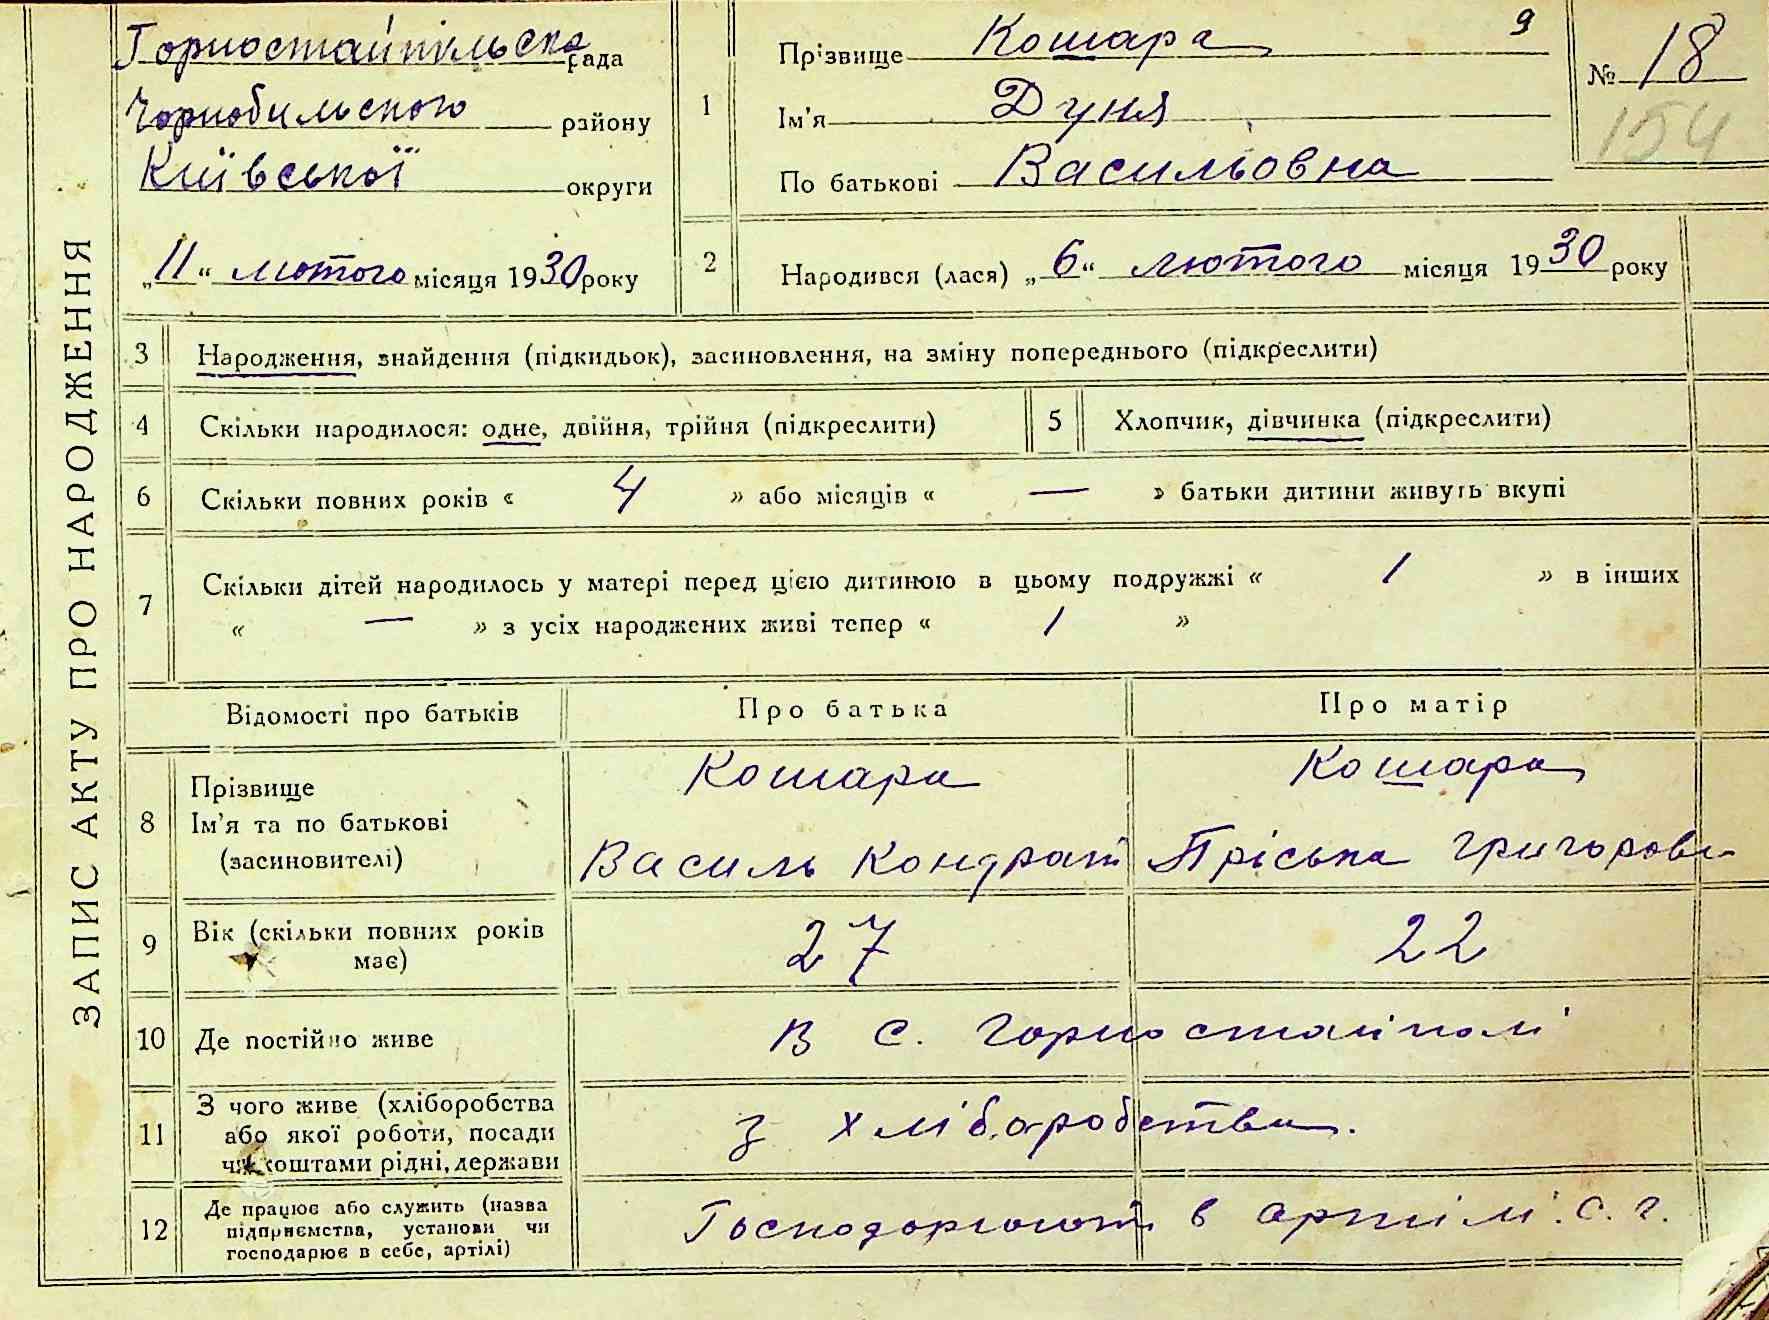 ЗАПИС АКТУ ПРО НАРОДЖЕННЯ
Горностайпільська рада
Чорнобильського району
Київської округи
„11“ лютого місяця 1930 року
1
Прізвище Кошара
9
Ім'я Дуня
По батькові Васильовна
№ 18
154
2
Народився (лася) „6“ лютого місяця 1930 року
3 Народження, знайдення (підкидьок), засиновлення, на зміну попереднього (підкреслити)
4 Скільки народилося: одне, двійня, трійня (підкреслити)
5 Хлопчик, дівчинка (підкреслити)
6 Скільки повних років « 4 » або місяців « — » батьки дитини живуть вкупі
7 Скільки дітей народилось у матері перед цією дитиною в цьому подружжі « 1 » в інших
« — » з усіх народжених живі тепер « 1 »
Відомості про батьків Про батька Про матір
8 Прізвище
Ім'я та по батькові
(засиновителі)
Кошара
Василь Кондрат
Кошара
Пріська Григоровн
9 Вік (скільки повних років має)
27 22
10 Де постійно живе
в с. Горностайполі
11 З чого живе (хліборобства
або якої роботи, посади
чи коштами рідні, держави
з хліборобства.
12 Де працює або служить (назва
підприємства, установи чи
господарює в себе, артілі)
Господорюют в артілі с. г.